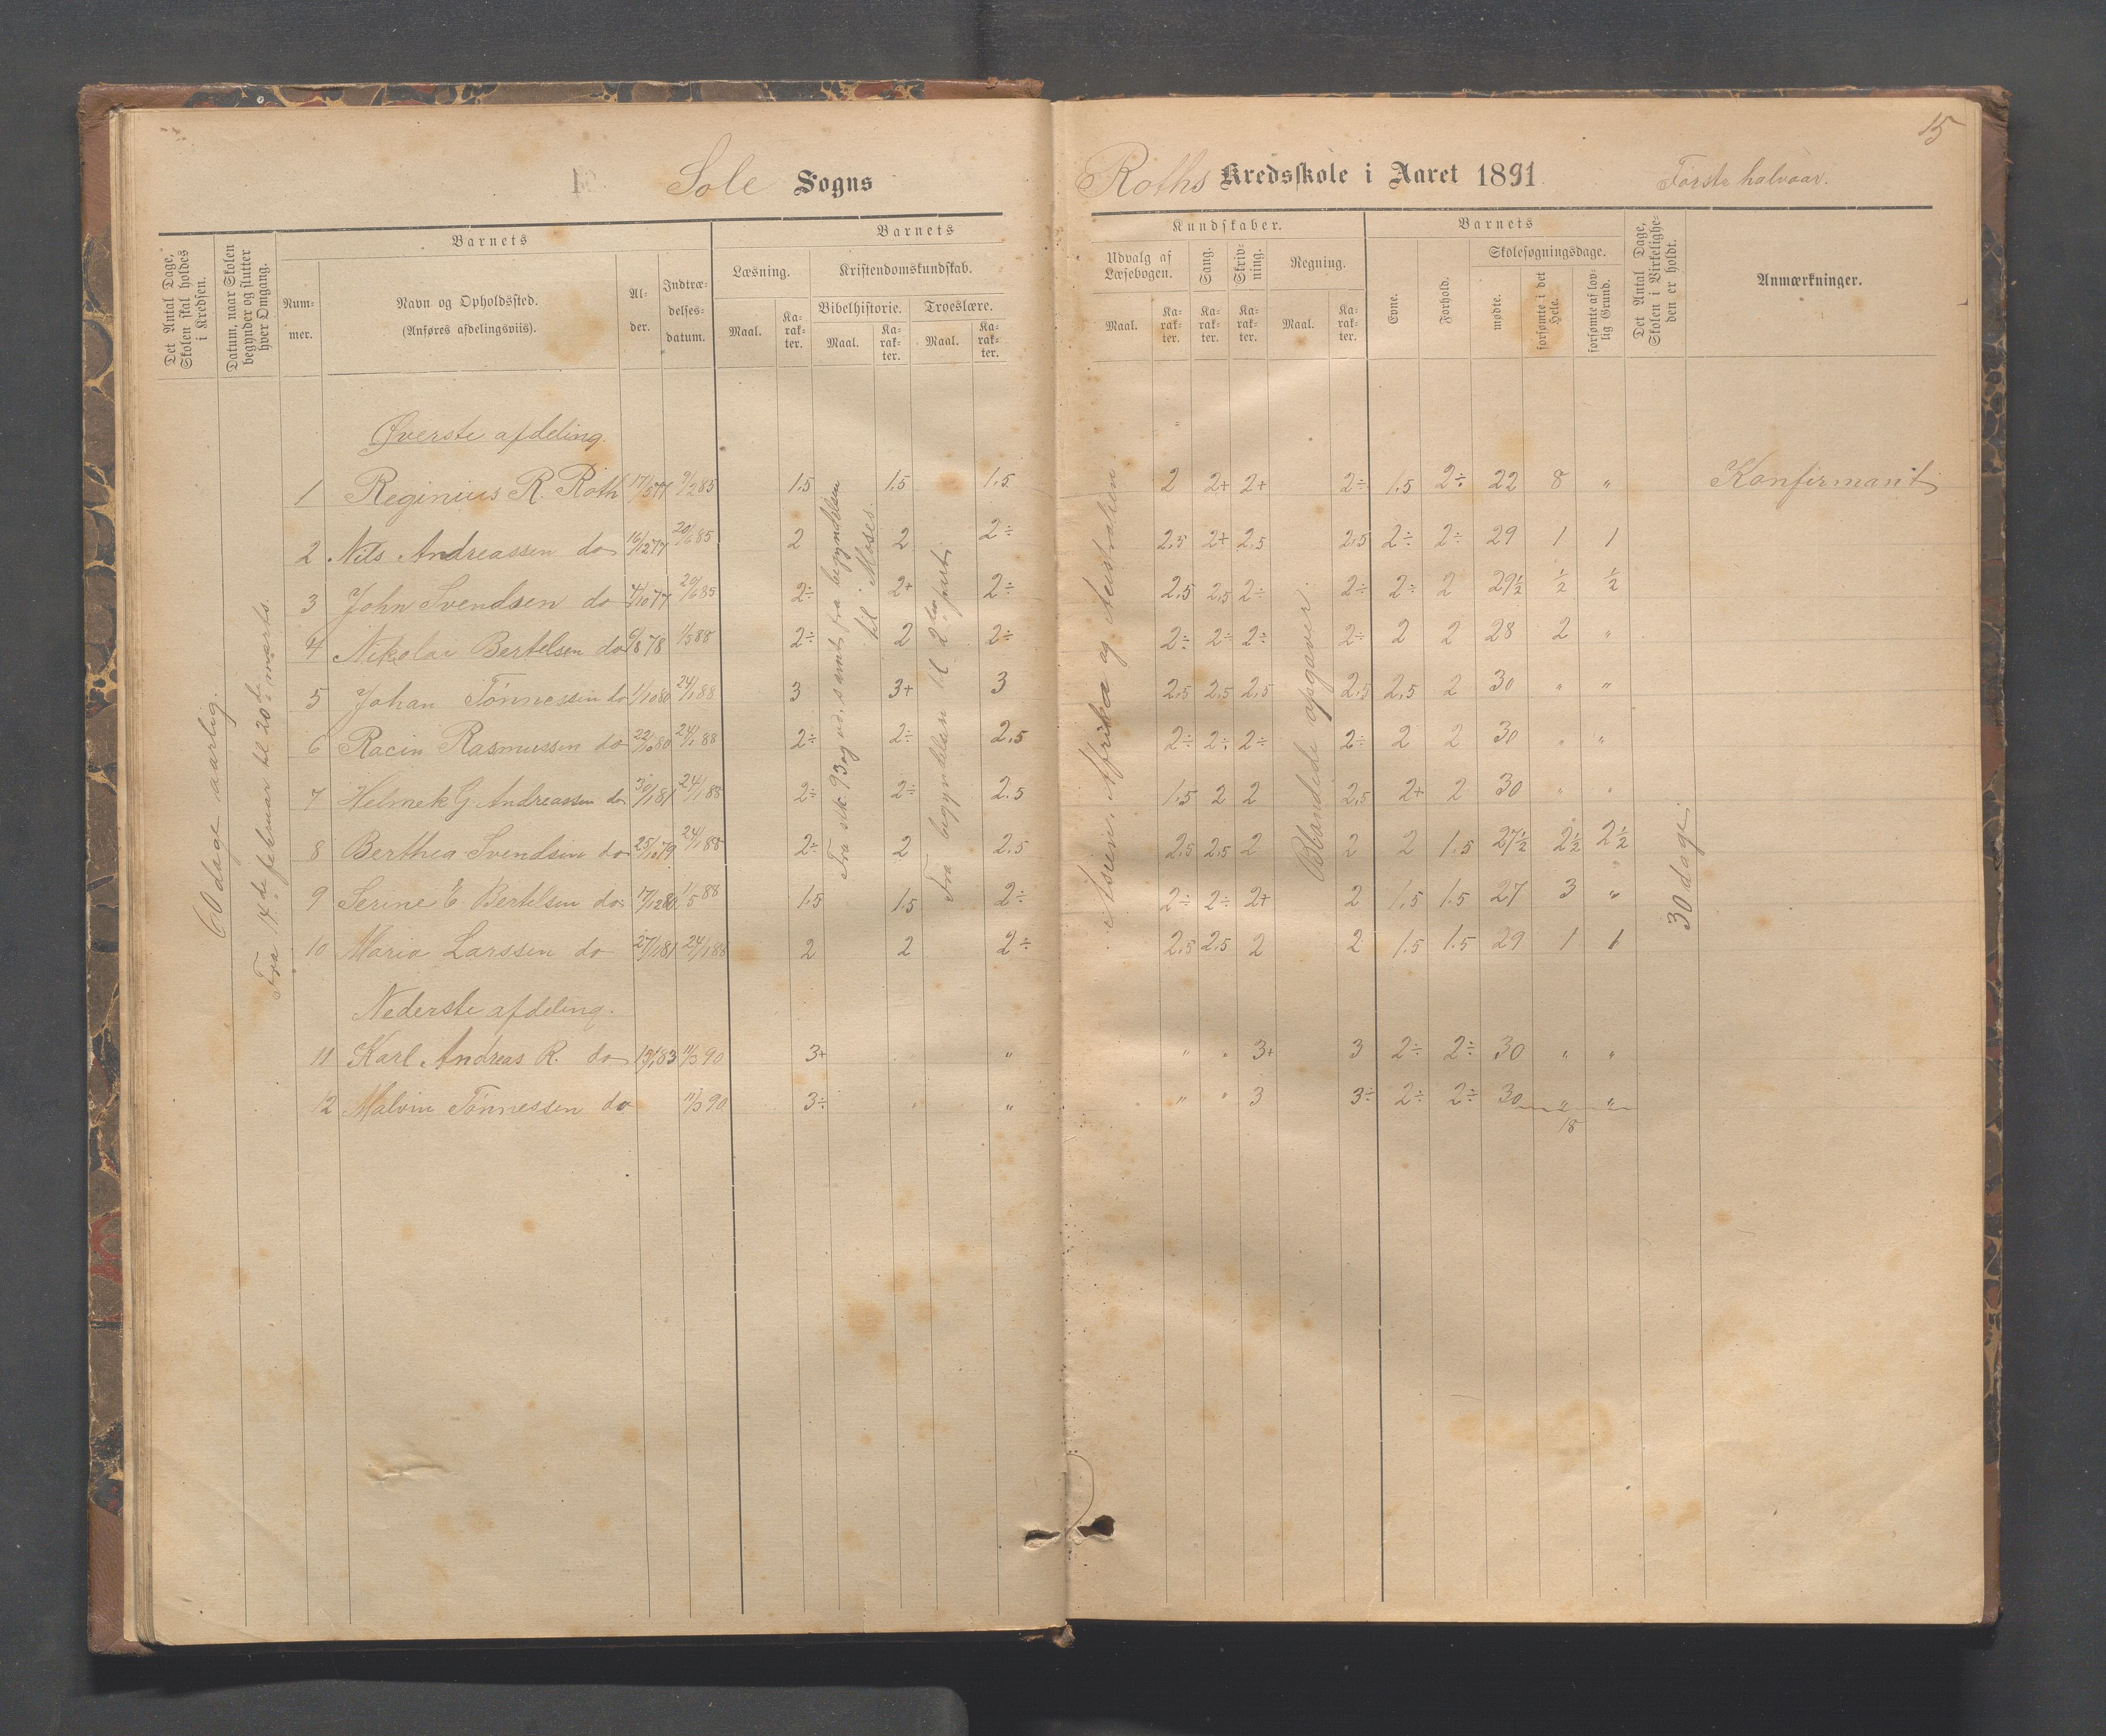 15
Sole Sogns
Roths Kredsskole i Aaret 1891
Første halvaar.
Det Antal Dage, Skolen skal holdes i Kredsen.
Datum, naar Skolen begynder og slutter hver Omgang.
Barnets
Num-mer.
Navn og Opholdssted.
(Anføres afdelingsviis).
Al-der.
Indtræ-delses-datum.
Barnets
Læsning.
Maal.
Ka-rak-ter.
Kristendomskundskab.
Bibelhistorie.
Maal.
Ka-rak-ter.
Troeslære.
Maal.
Ka-rak-ter.
Kundskaber.
Udvalg af Læsebogen.
Maal.
Ka-rak-ter.
Sang.
Ka-rak-ter.
Skriv-ning.
Ka-rak-ter.
Regning.
Maal.
Ka-rak-ter.
Barnets
Evne.
Forhold.
Skolesøgningsdage.
mødte.
forsømte i det Hele.
forsømte af lov-lig Grund.
Det Antal Dage, Skolen i Virkelighe-den er holdt.
Anmærkninger.
60 dage aarlig.
Fra 14de februar til 20de marts.
Fra stk. 93 og ud, samt fra begyndelsen til Moses.
Fra begyndelsen til 2den part.
Asien, Afrika og Australien
Blandede opgaver.
30 dage.
Øverste afdeling.
1 Reginius R. Roth 17/5 77 9/2 85 1.5 1.5 1.5 2 2+ 2+ 2÷ 1.5 2÷ 22 8 „ Konfirmant
2 Nils Andreassen do 16/12 77 20/6 85 2 2 2÷ 2.5 2+ 2.5 2.5 2÷ 2÷ 29 1 1
3 John Svendsen do 4/10 77 20/6 85 2÷ 2+ 2÷ 2.5 2.5 2÷ 2÷ 2÷ 2 29½ ½ ½
4 Nikolai Bertelsen do 6/8 78 1/5 88 2÷ 2 2÷ 2÷ 2÷ 2÷ 2÷ 2 2 28 2 „
5 Johan Tönnessen do 1/10 80 24/1 88 3 3+ 3 2.5 2.5 2.5 2.5 2.5 2 30 „ „
6 Racin Rasmussen do 22/10 80 24/1 88 2÷ 2÷ 2.5 2÷ 2÷ 2÷ 2÷ 2 2 30 „ „
7 Helmek G. Andreassen do 30/1 81 24/1 88 2÷ 2÷ 2.5 1.5 2 2 2.5 2+ 2 30 „ „
8 Berthea Svendsen do 25/10 79 24/1 88 2÷ 2 2.5 2.5 2.5 2 2 2 1.5 27½ 2½ 2½
9 Serine E. Bertelsen do 17/12 80 1/5 88 1.5 1.5 2÷ 2÷ 2÷ 2+ 2 1.5 1.5 27 3 „
10 Maria Larssen do 27/1 81 24/1 88 2 2 2÷ 2.5 2.5 2 2 1.5 1.5 29 1 1
Nederste afdeling.
11 Karl Andreas R. do 15/1 83 11/3 90 3+ „ „ „ 3+ 3 2÷ 2÷ 30 „ „
12 Malvin Tönnessen do 11/3 90 3÷ „ „ „ 3 3÷ 2÷ 2÷ 30 „ „
18